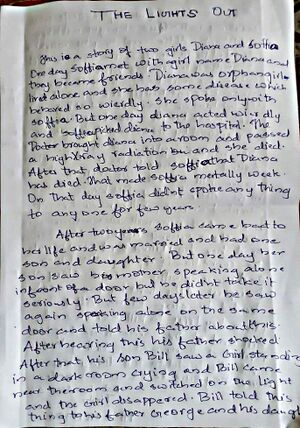 THE LIGHTS OUT
This is a story of two girls Diana and Soffia
One day Soffia met with a girl name Diana and
they became friends. Diana was orphan girl
lived alone and she has some disease which
behaved so wierdly. She spoke only with
soffia. But one day diana acted wierdly
and soffia picked diana to the hospital. The
Doctor brought diana into a room and passed
a high Xray radiation and she died.
After that doctor told soffia that Diana
has died. That made soffia metally weak.
On that day soffia didn't spoke any thing
to any one for few years.
After two years soffia came back to
her life and was married and had one
son and daughter. But one day her
son saw his mother speaking alone
infront of a door but he didn't take it
seriously. But few days later he saw
again speaking alone on the same
door and told his father about this.
After hearing this his father shocked
After that his son Bill saw a Girl standing
in a dark room crying and Bill came
near the room and switched on the light
and the Girl disappered. Bill told this
thing to his father George and his